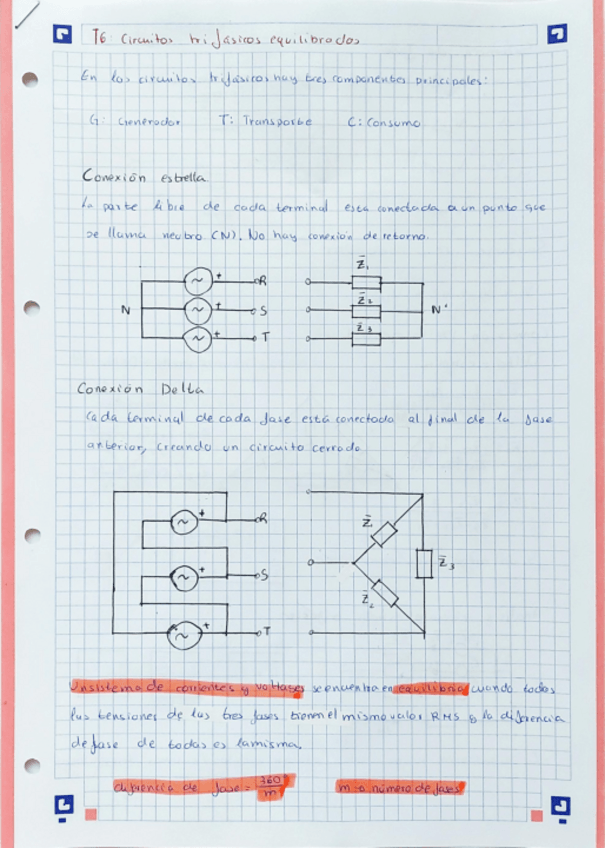 T6 Circuitos trifásicos equilibrados
En los circuitos trifásicos hay tres componentes principales:
G: Generador T: Transporte C: Consumo
Conexión estrella
La parte libre de cada terminal está conectada a un punto que
se llama neutro (N). No hay conexión de retorno.
Z̄₁
+ R
Z̄₂
N + S N'
Z̄₃
+ T
Conexión Delta
Cada terminal de cada fase está conectado al final de la fase
anterior, creando un circuito cerrado
+ R Z̄₁
+ S Z̄₃
Z̄₂
+ T
Un sistema de corrientes y voltages se encuentra en equilibrio cuando todas
las tensiones de las tres fases tienen el mismo valor RMS y la diferencia
de fase de todas es la misma.
diferencia de fase = 360/m m → número de fases